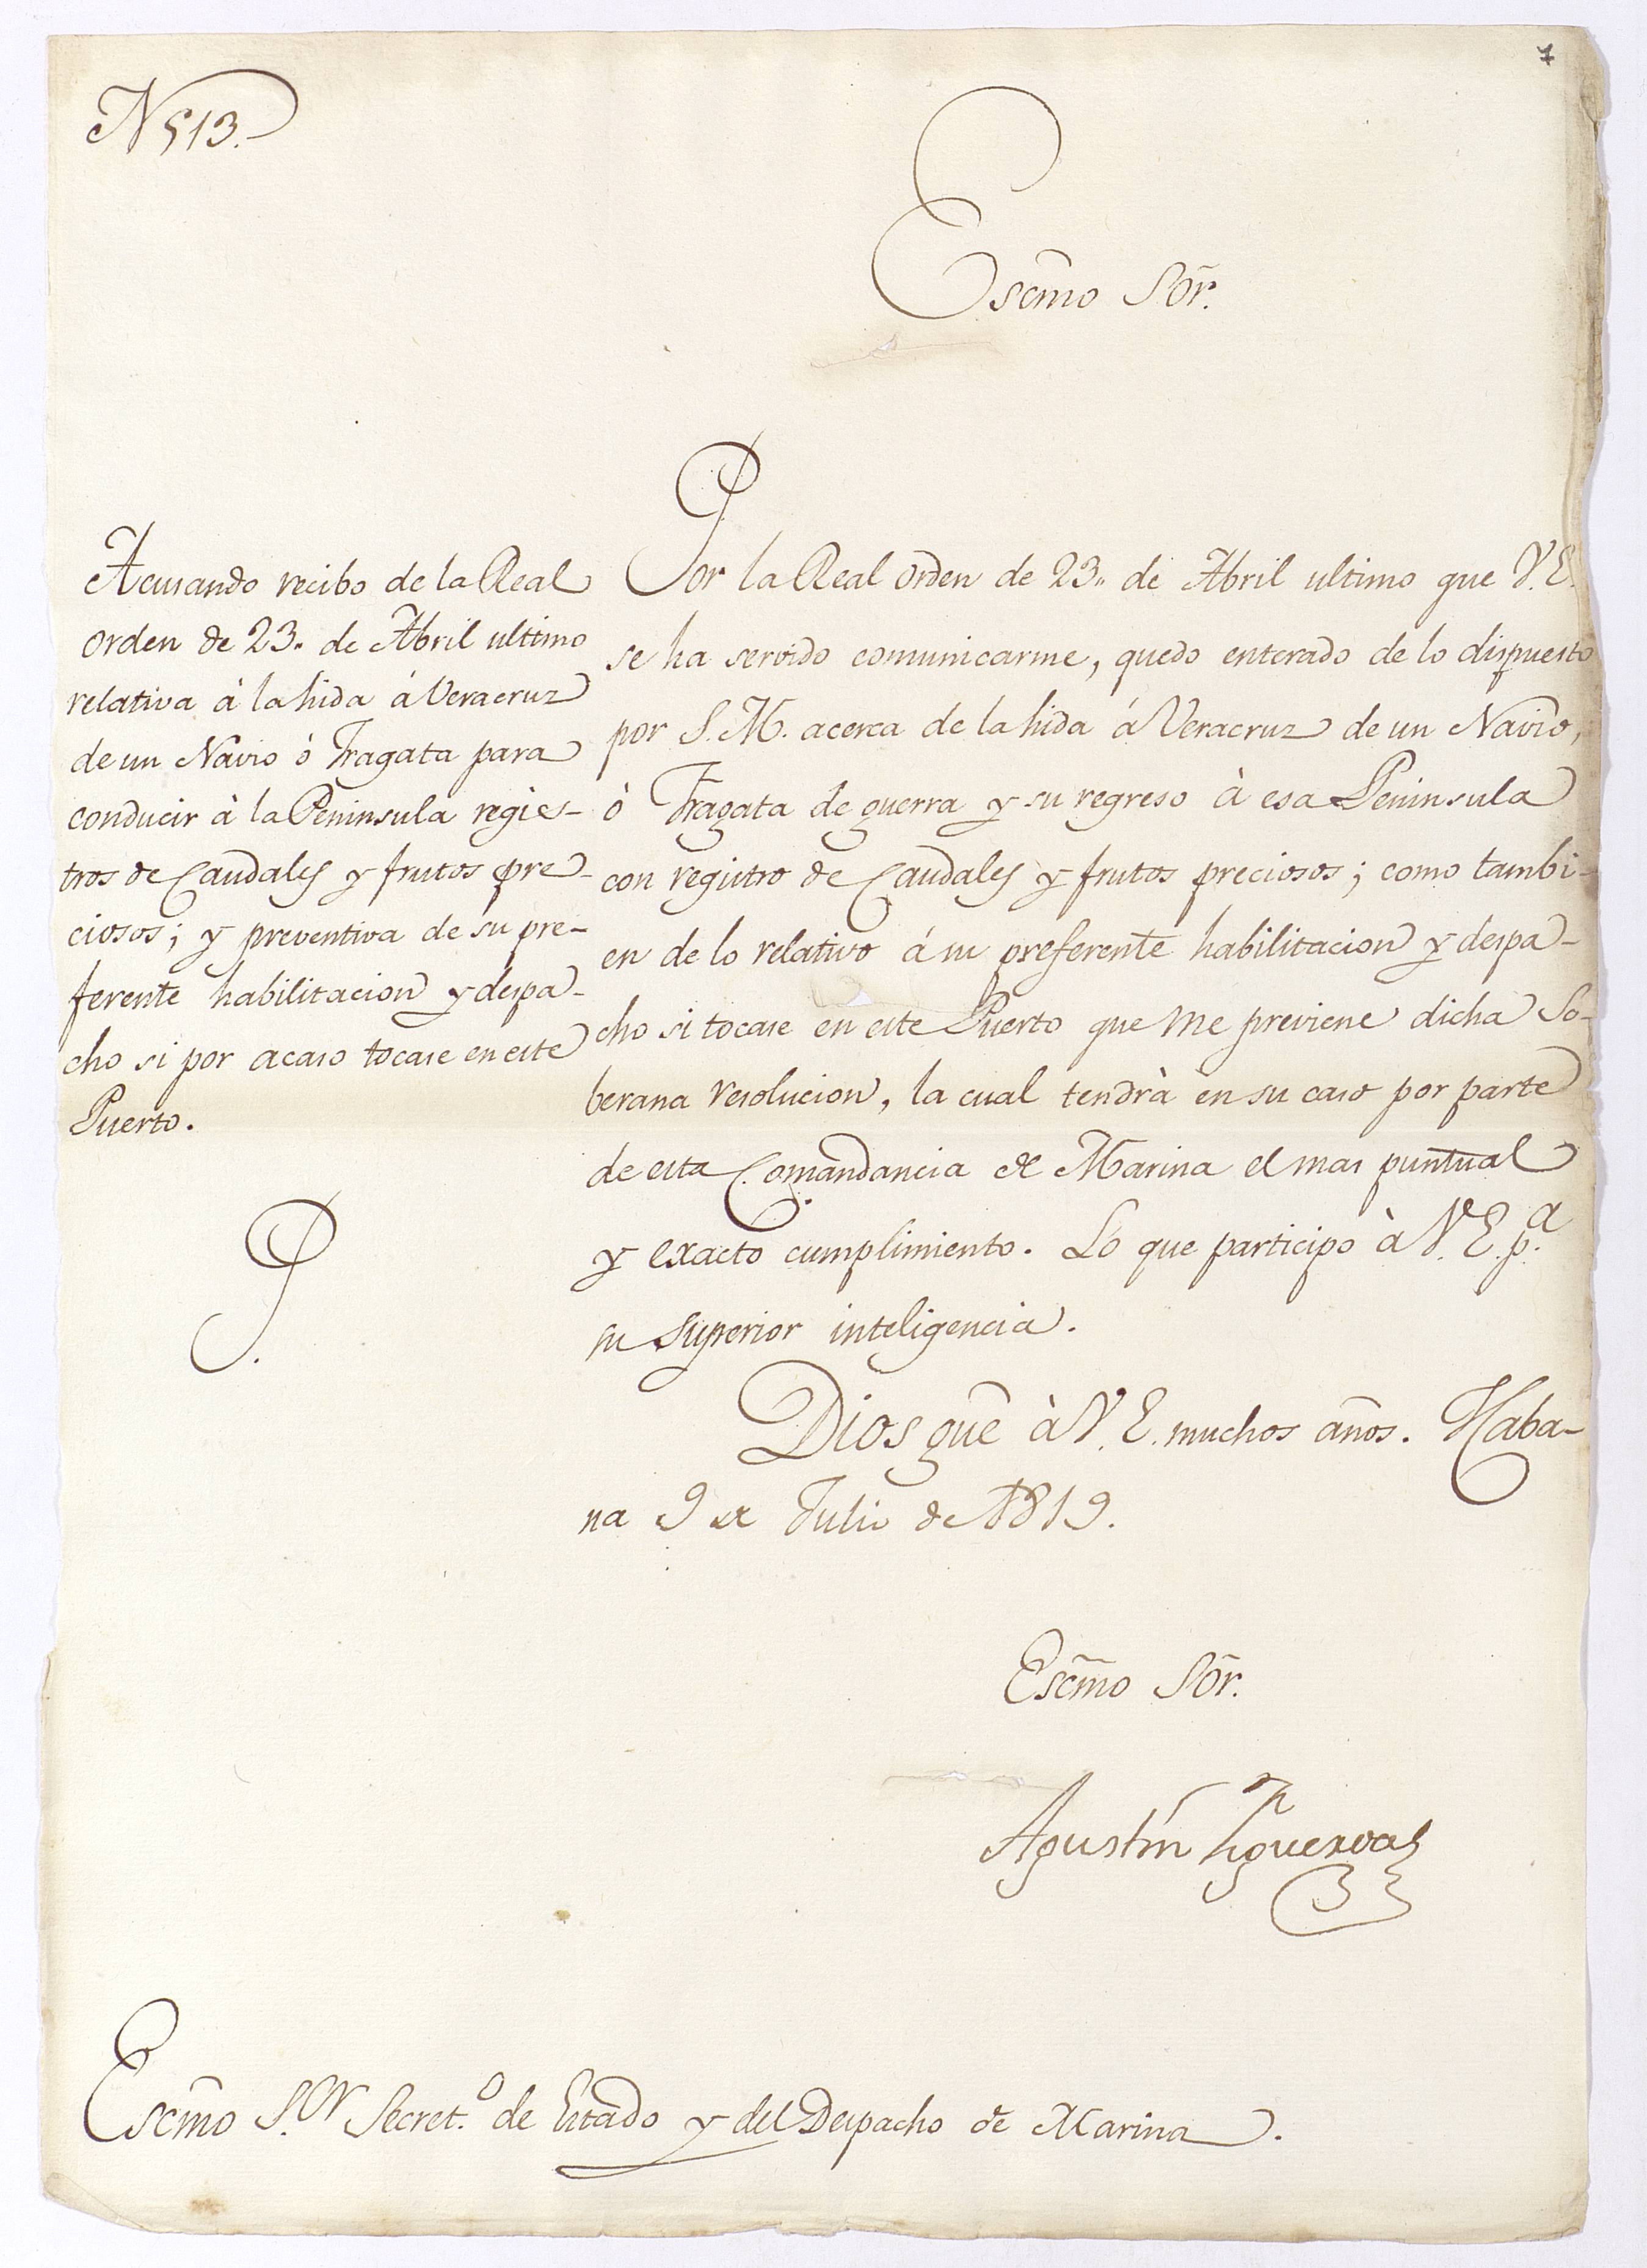 N 513.
Escm̃o Sõr.
Acusando recibo de la Real
orden de 23. de Abril ultimo
relativa à la hida á Veracruz
de un Navio ó Fragata para
conducir à la Peninsula regis-
tros de Caudales y frutos pre-
ciosos; y preventiva de su pre-
ferente habilitacion y despa-
cho si por acaso tocase en este
Puerto.
Por la Real orden de 23,, de Abril ultimo que V.E.
se ha servido comunicarme, quedo enterado de lo dispuesto
por S.M. acerca de la hida á Veracruz de un Navio,
ò Fragata de guerra y su regreso à esa Peninsula
con registro de Caudales y frutos preciosos; como tambi-
en de lo relativo á su preferente habilitacion y despa-
cho si tocase en este Puerto que me previene dicha So-
berana resolucion, la cual tendrà en su caso por parte
de esta Comandancia de Marina el mas puntual
y exacto cumplimiento. Lo que participo à V.E. p.ª
su superior inteligencia.
Dios gue à V.E. muchos años. Haba-
na 9 de Julio de 1819.
Escm̃o Sõr.
Agustín Figueroa
Escm̃o S.or Secret.º de Estado y del Despacho de Marina.